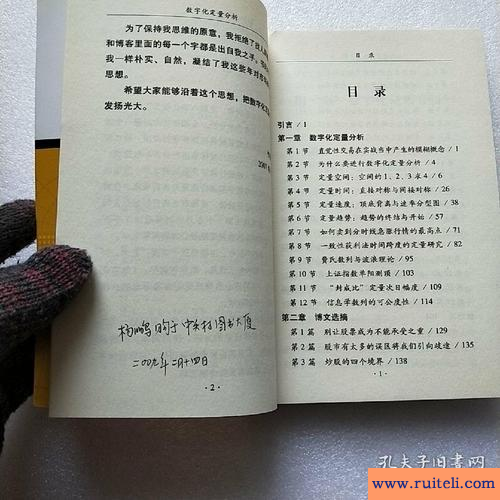 数字化定量分析
为了保持我思维的原意，我拒绝了
和博客里面的每一个字都是出自我之手。
我一样朴实、自然，凝结了我这些年对
思想。
希望大家能够沿着这个思想，把数字化定
发扬光大。
2007
杨鹏购于中关村图书大厦
二〇〇九年二月十四日
·2·
目录
目录
引言 / 1
第一章 数字化定量分析
第1节 直觉性交易在实战当中产生的模糊概念 / 1
第2节 为什么要进行数字化定量分析 / 4
第3节 定量空间：空间的1、2、3求4 / 6
第4节 定量时间：直接对称与间接对称 / 26
第5节 定量速度：顶底背离与速率分型图 / 38
第6节 定量趋势：趋势的终结与开始 / 57
第7节 如何卖到分时线急涨行情的最高点 / 71
第8节 一致性获利法时间跨度的定量研究 / 82
第9节 费氏数列与波浪理论 / 95
第10节 上证指数单阳测顶 / 110
第11节 “封成比”定量次日幅度 / 111
第12节 信息学数列的可公度性 / 114
第二章 博文选摘
第1篇 别让股票成为不能承受之重 / 129
第2篇 股市有太多的误区将我们引向歧途 / 135
第3篇 炒股的四个境界 / 138
·1·
孔夫子旧书网
www.ruiteli.com